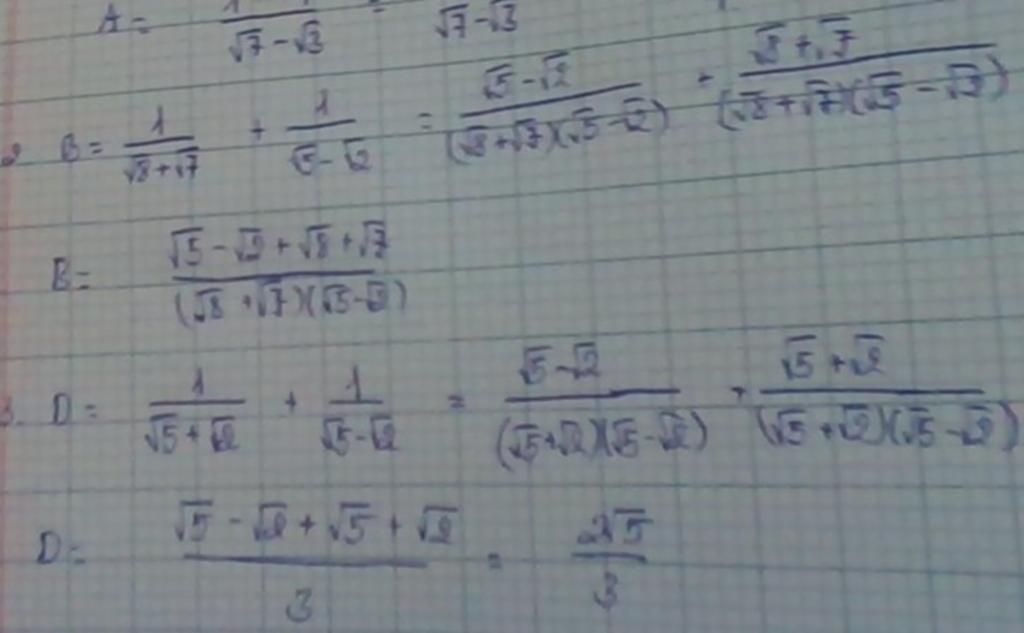 A = 1/(√7 - √3) = /(√7 - √3)
B = 1/(√8 + √7) + 1/(√5 - √2) = (√5 - √2)/((√8 + √7)(√5 - √2)) + (√8 + √7)/((√8 + √7)(√5 - √2))
B = (√5 - √2 + √8 + √7)/((√8 + √7)(√5 - √2))
3. D = 1/(√5 + √2) + 1/(√5 - √2) = (√5 - √2)/((√5 + √2)(√5 - √2)) + (√5 + √2)/((√5 + √2)(√5 - √2))
D = (√5 - √2 + √5 + √2)/3 = 2√5/3